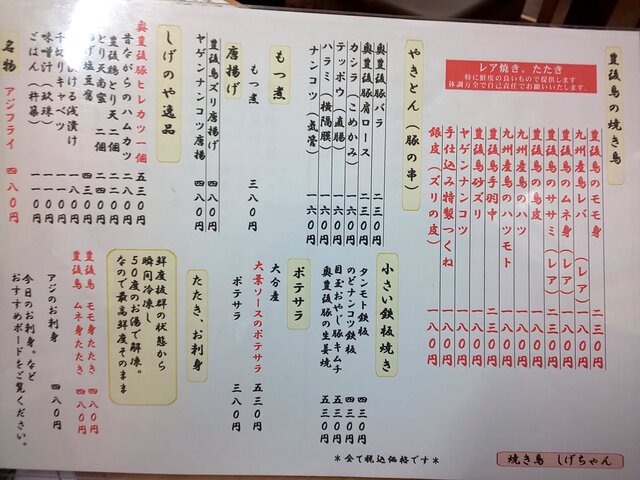 豊後鳥の焼き鳥
レア焼き、たたき
特に鮮度の良いもので提供します
体調万全で自己責任でお願いいたします。
豊後鳥のモモ身 二三〇円
九州産鳥レバ(レア) 一八〇円
豊後鳥のムネ身(レア) 一八〇円
豊後鳥のササミ(レア) 二三〇円
豊後鳥の鳥皮 一八〇円
九州産鳥のハツ 一八〇円
九州産鳥のハツモト 一八〇円
豊後鳥手羽中 二三〇円
豊後鳥砂ズリ 一八〇円
ヤゲンナンコツ 一八〇円
手仕込み特製つくね 一八〇円
銀皮(ズリの皮) 一八〇円
やきとん(豚の串)
奥豊後豚バラ 二三〇円
奥豊後豚肩ロース 二三〇円
カシラ(こめかみ) 一六〇円
テッポウ(直腸) 一六〇円
ハラミ(横隔膜) 一六〇円
ナンコツ(気管) 一六〇円
もつ煮
もつ煮 三八〇円
唐揚げ
豊後鳥ズリ唐揚げ 四八〇円
ヤゲンナンコツ唐揚 四八〇円
しげのや逸品
奥豊後豚ヒレカツ一個 五三〇円
昔ながらのハムカツ 一八〇円
豊後鶏とり天 二個 二八〇円
とり天南蛮 二個
塩豆腐 四三〇円
ける浅漬け
千切りキャベツ
味噌汁(玖珠)
ごはん(杵築)
名物 アジフライ 四八〇円
小さい鉄板焼き
タンモト鉄板 四三〇円
のどナンコツ鉄板 四三〇円
目玉おやじ豚キムチ 五三〇円
奥豊後豚の生姜焼 五三〇円
ポテサラ
大分産
大葉ソースのポテサラ 五三〇円
ポテサラ 三八〇円
たたき、お刺身
鮮度抜群の状態から
瞬間冷凍し
50度のお湯で解凍。
なので最高鮮度そのまま
豊後鳥 モモ身たたき 四八〇円
豊後鳥 ムネ身たたき 四八〇円
アジのお刺身 四八〇円
今日のお刺身。など
おすすめボードをご覧ください。
*全て税込価格です*
焼き鳥 しげちゃん